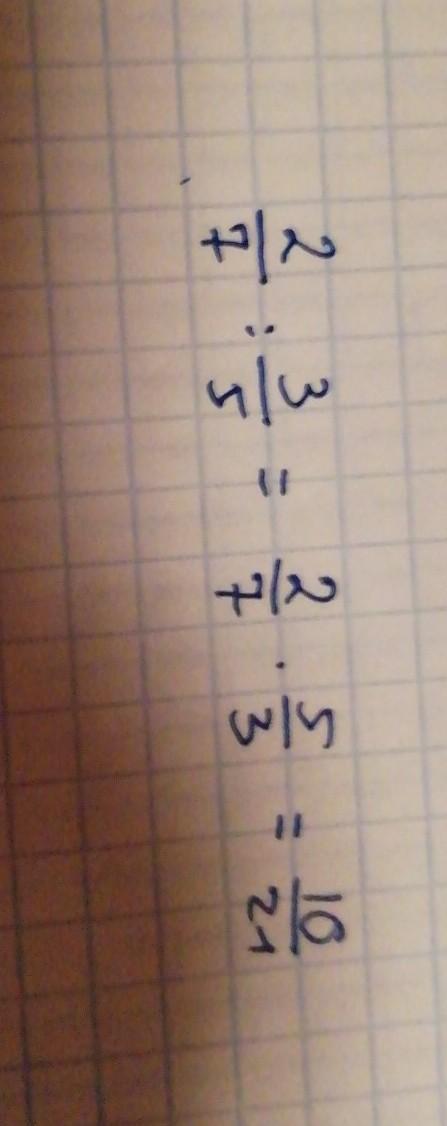 2/7 : 3/5 = 2/7 · 5/3 = 10/21